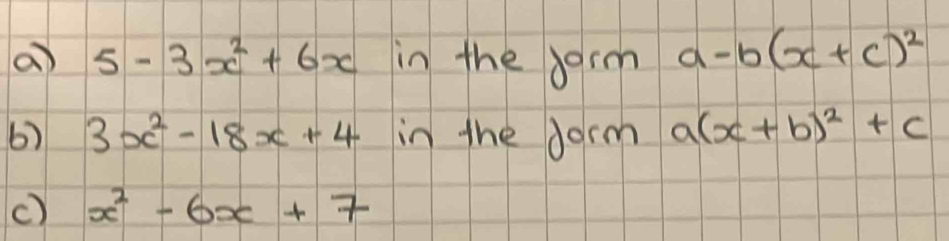 a) 5 - 3x² + 6x in the form a - b(x + c)²
b) 3x² - 18x + 4 in the form a(x + b)² + c
c) x² - 6x + 7